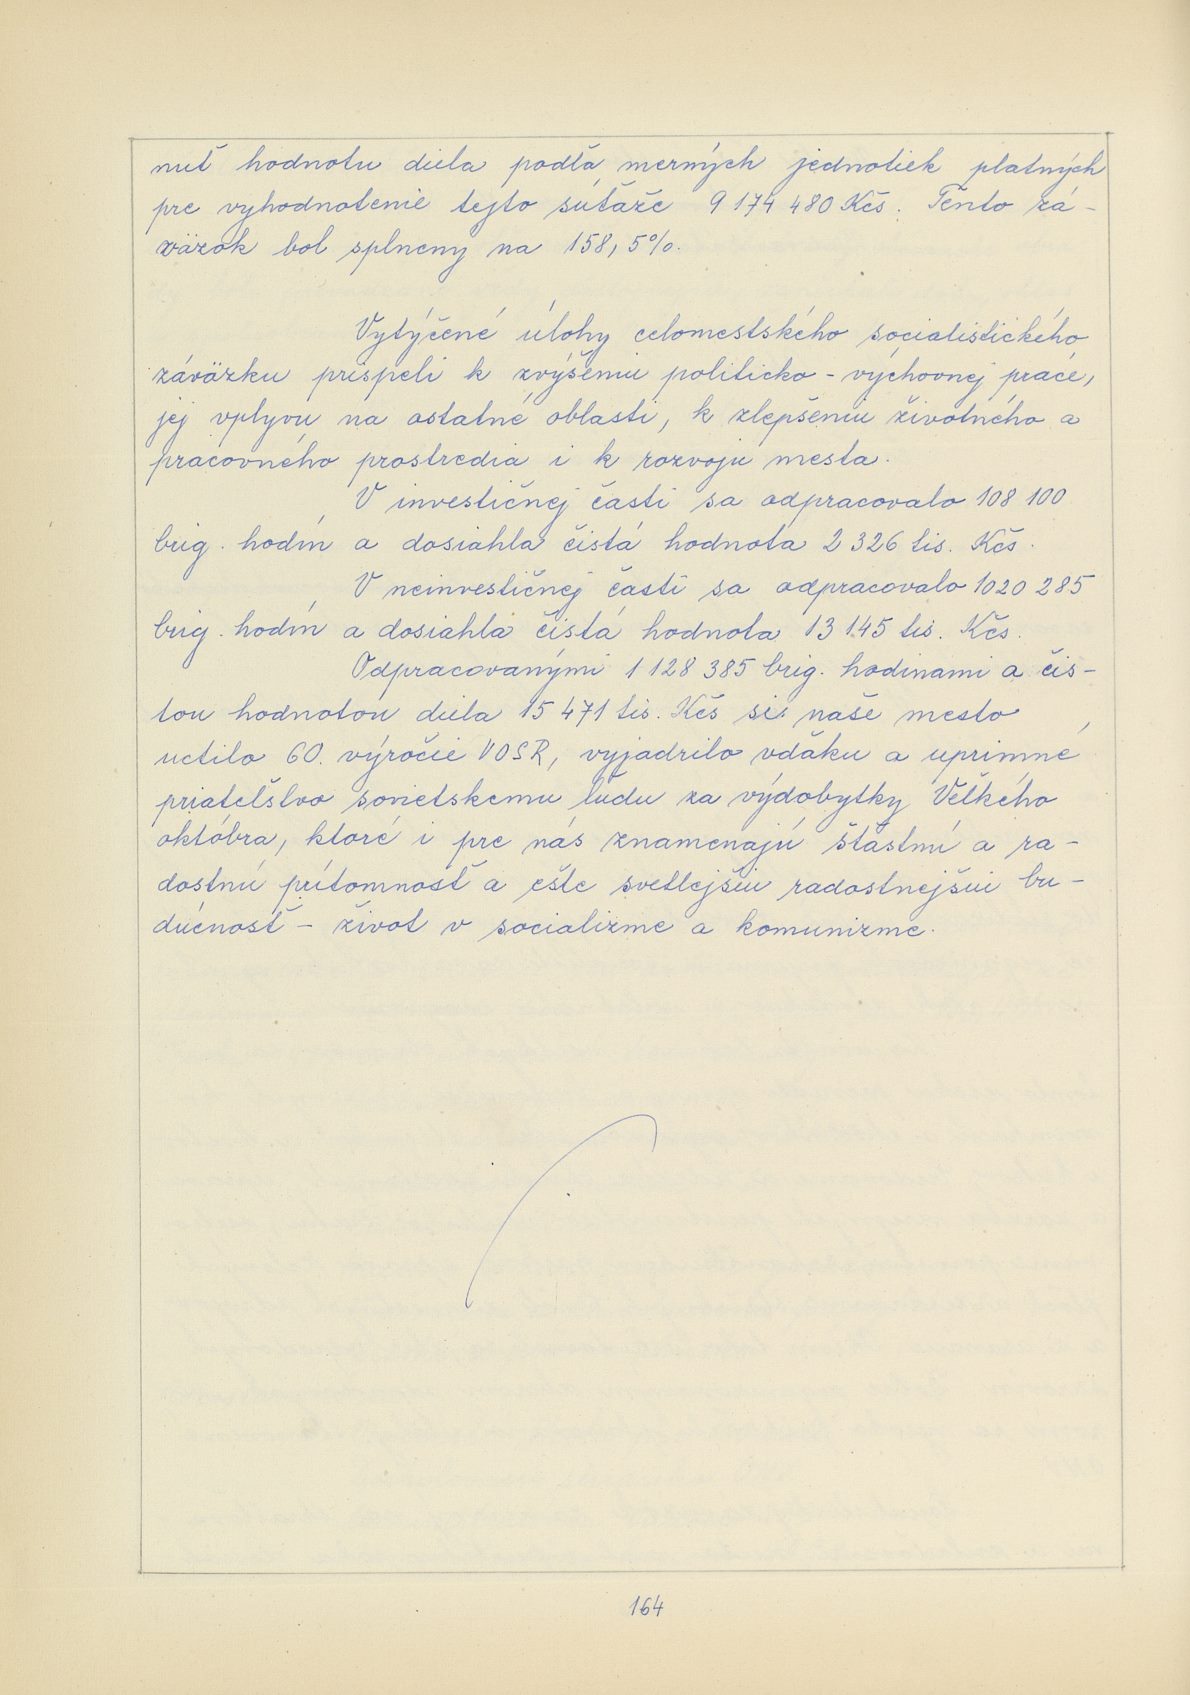 nuť hodnotu diela podľa merných jednotiek platných
pre vyhodnotenie tejto súťaže 9 174 480 Kčs. Tento zá-
väzok bol splneny na 158,5%.
Vytýčené úlohy celomestského socialistického
záväzku prispeli k zvýšeniu politicko-výchovnej práce,
jej vplyvu na ostatné oblasti, k zlepšeniu životného a
pracovného prostredia i k rozvoju mesta.
V investičnej časti sa odpracovalo 108 100
brig. hodín a dosiahla čistá hodnota 2 326 tis. Kčs.
V neinvestičnej časti sa odpracovalo 1020 285
brig. hodín a dosiahla čistá hodnota 13 145 tis. Kčs.
Odpracovanými 1 128 385 brig. hodinami a čis-
tou hodnotou diela 15 471 tis. Kčs si naše mesto
uctilo 60. výročie VOSR, vyjadrilo vďaku a uprimné
priateľstvo sovietskemu ľudu za výdobytky Veľkého
októbra, ktoré i pre nás znamenajú šťastnú a ra-
dostnú prítomnosť a ešte svetlejšiu radostnejšiu bu-
dúcnosť - život v socializme a komunizme.
164